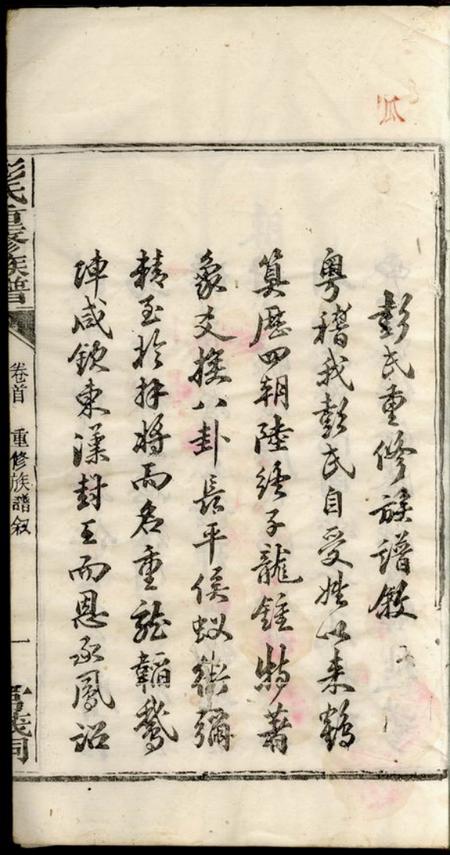 彭氏重修族譜敘
粤稽我彭氏自受姓以來鶴
算歷四朝陸終子龍鍾特著
象交操八卦長平侯蟻術彌
精至於拜將而名重龍韜鵞
陣咸欽東漢封王而恩承鳳詔
彭氏重修族譜
卷首
重修族譜叙
一
瓜